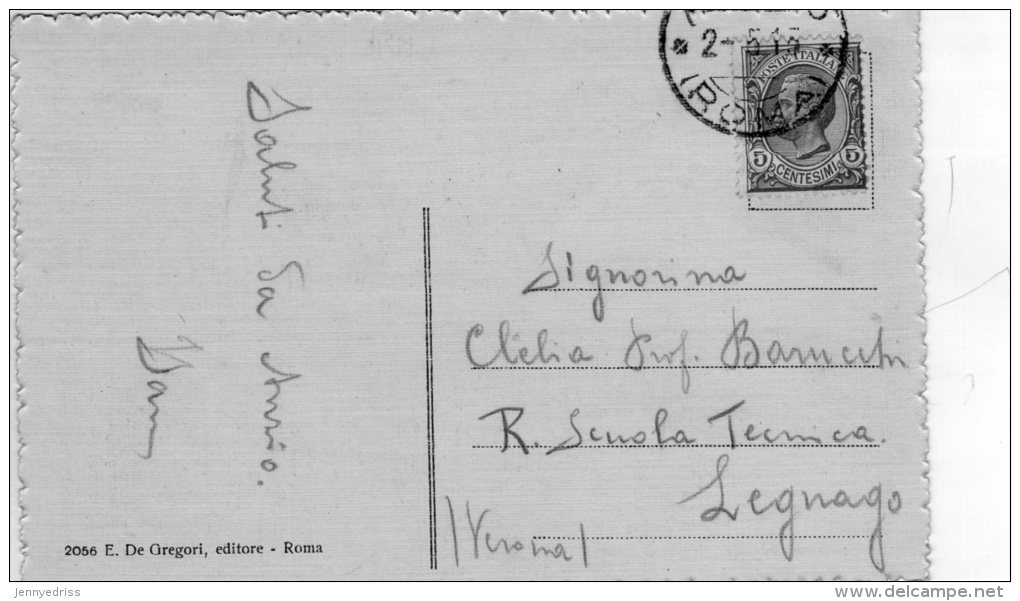 Saluti da Anzio.
2-5-1
(ROMA)
POSTE ITALIANE
5 CENTESIMI 5
Signorina
Clelia Prof. Barucchi
R. Scuola Tecnica.
Legnago
(Verona)
2056 E. De Gregori, editore - Roma
jennyedriss